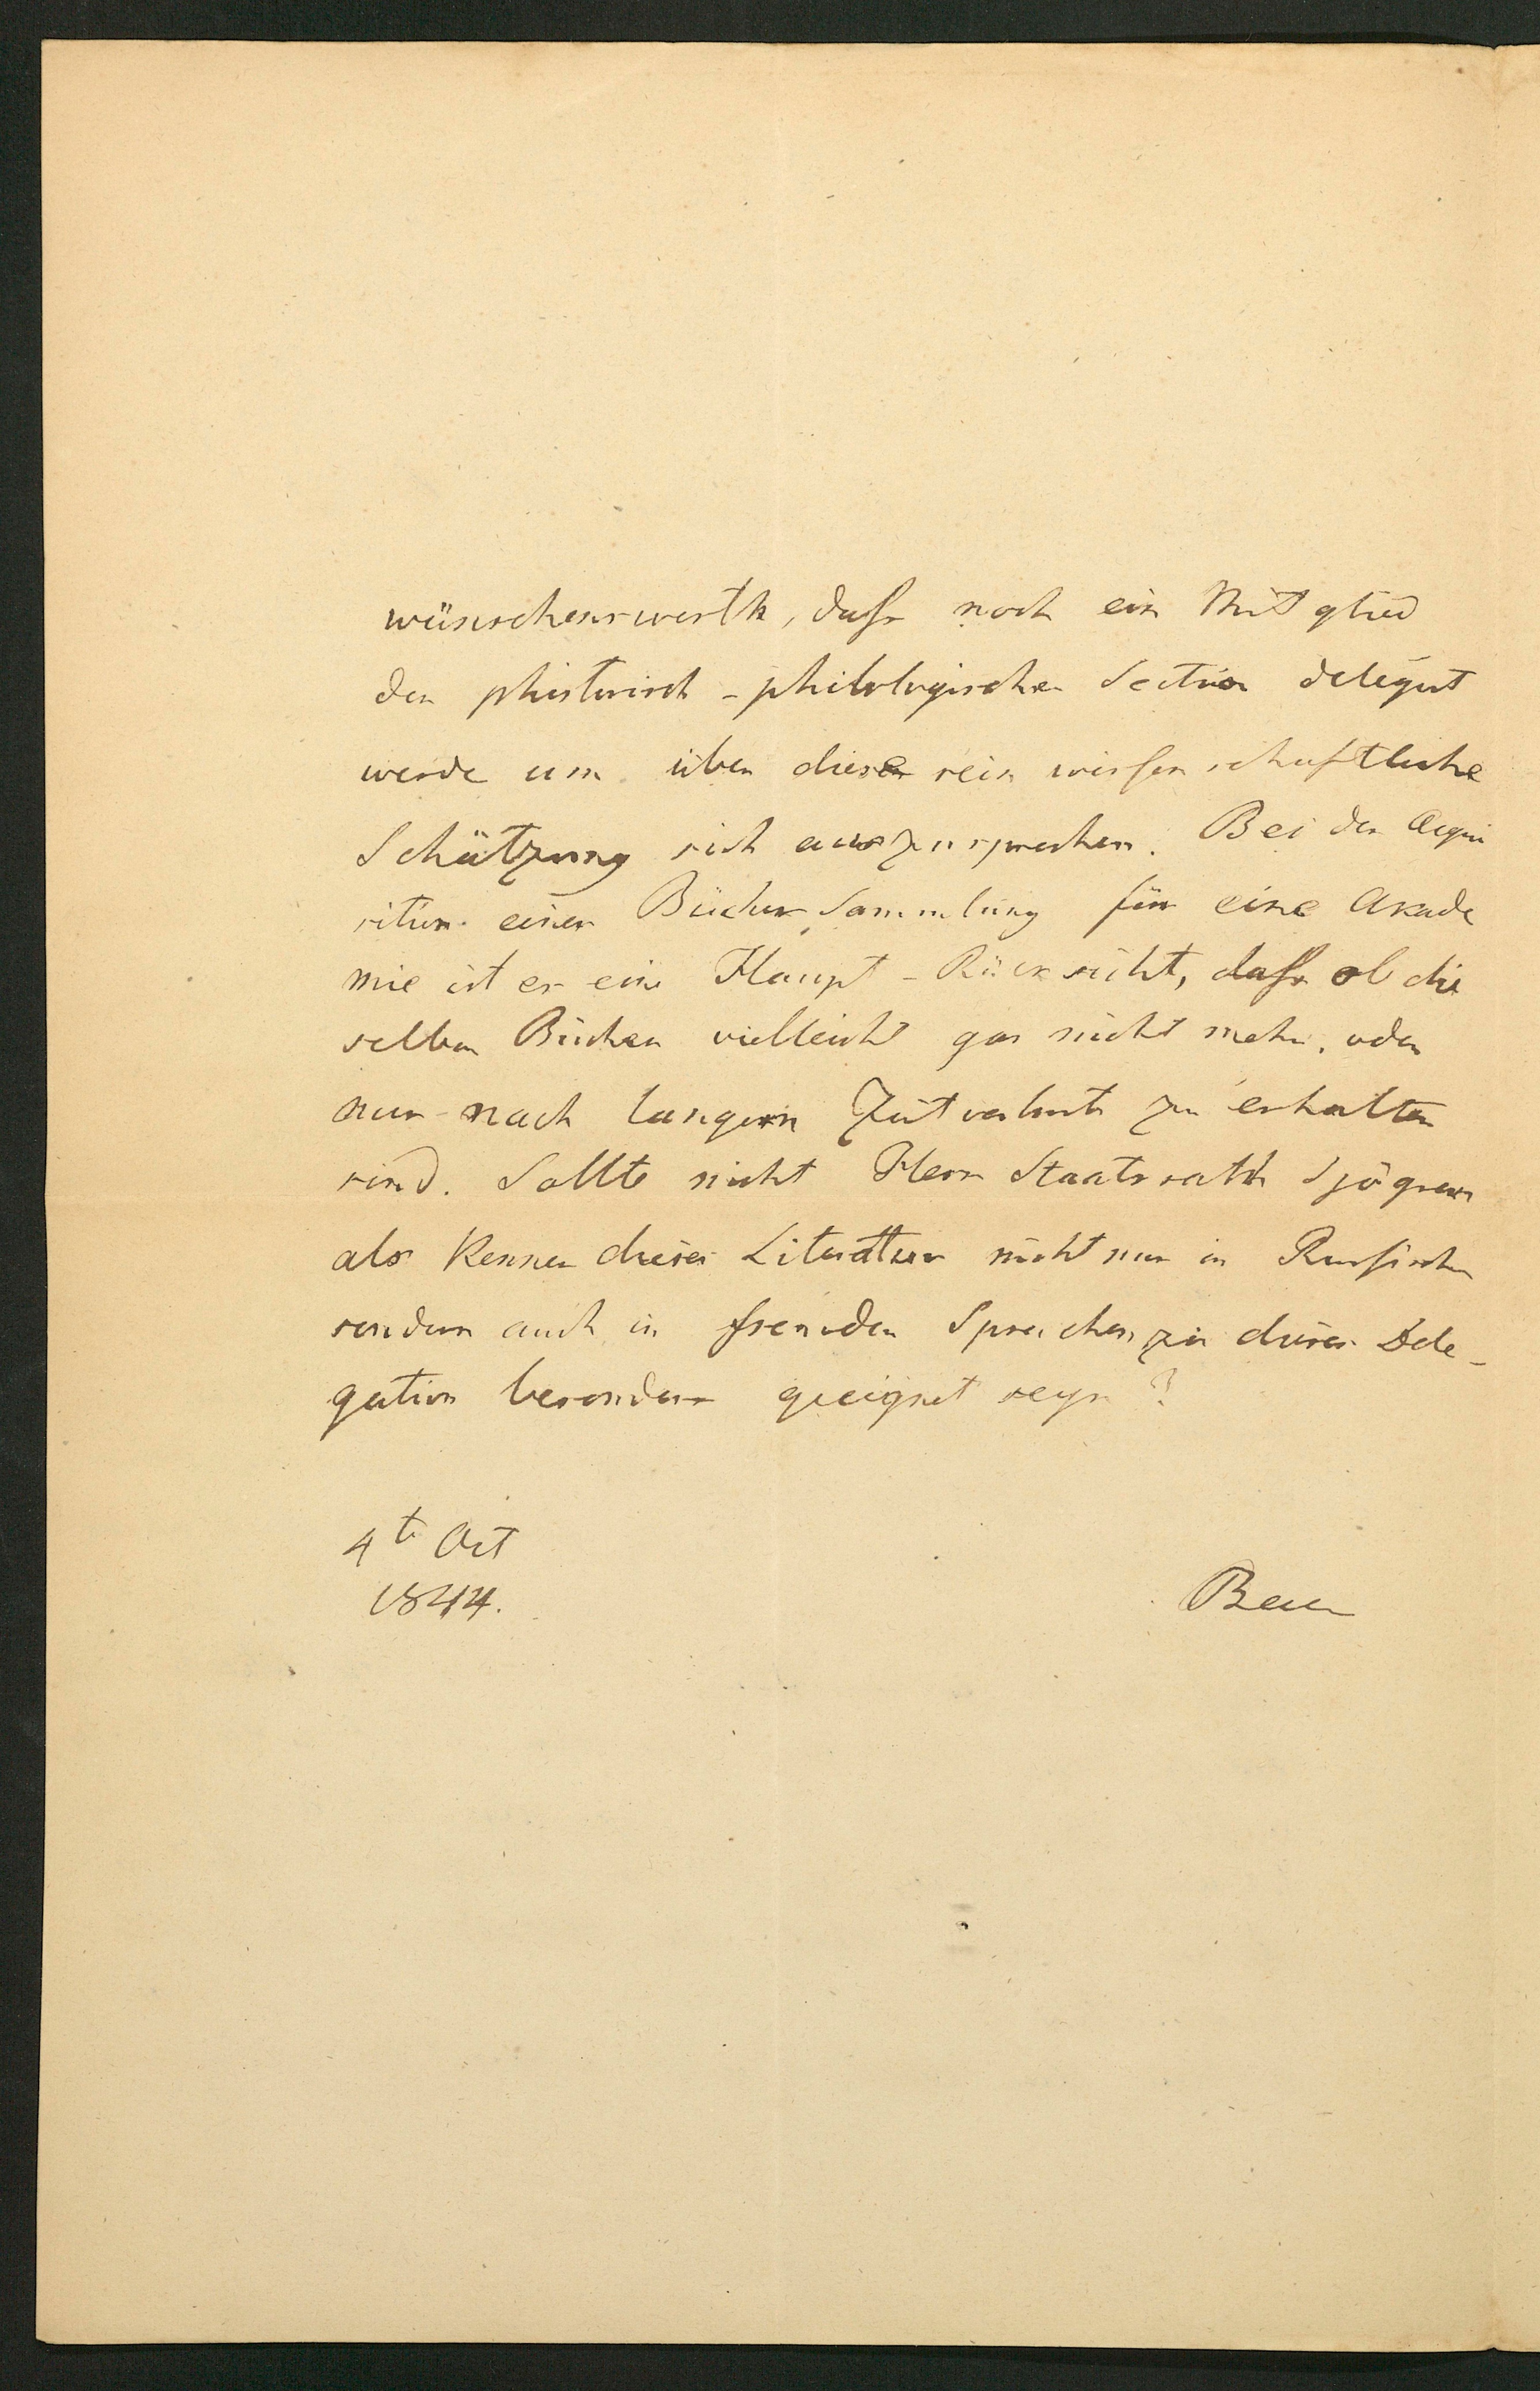 wünschenswerth, dass noch ein Mitglied
der phistorisch-philologischen Section delegirt
werde um über diese rein wissenschaftliche
Schätzung sich auszusprechen. Bei der Acqui
sition einer Bücher Sammlung für eine Akade
mie ist es eine Haupt-Rücksicht, dass ob die
selben Bücher vielleicht gar nicht mehr, oder
nur nach langem Zeitverluste zu erhalten
sind. Sollte nicht Herr Staatsrath Sjögren
als Kenner dieser Literatur nicht nur in Russischen
sondern auch in fremden Sprachen zu dieser Dele-
gation besonders geeignet seyn?
4te Oct
1844.
Baer